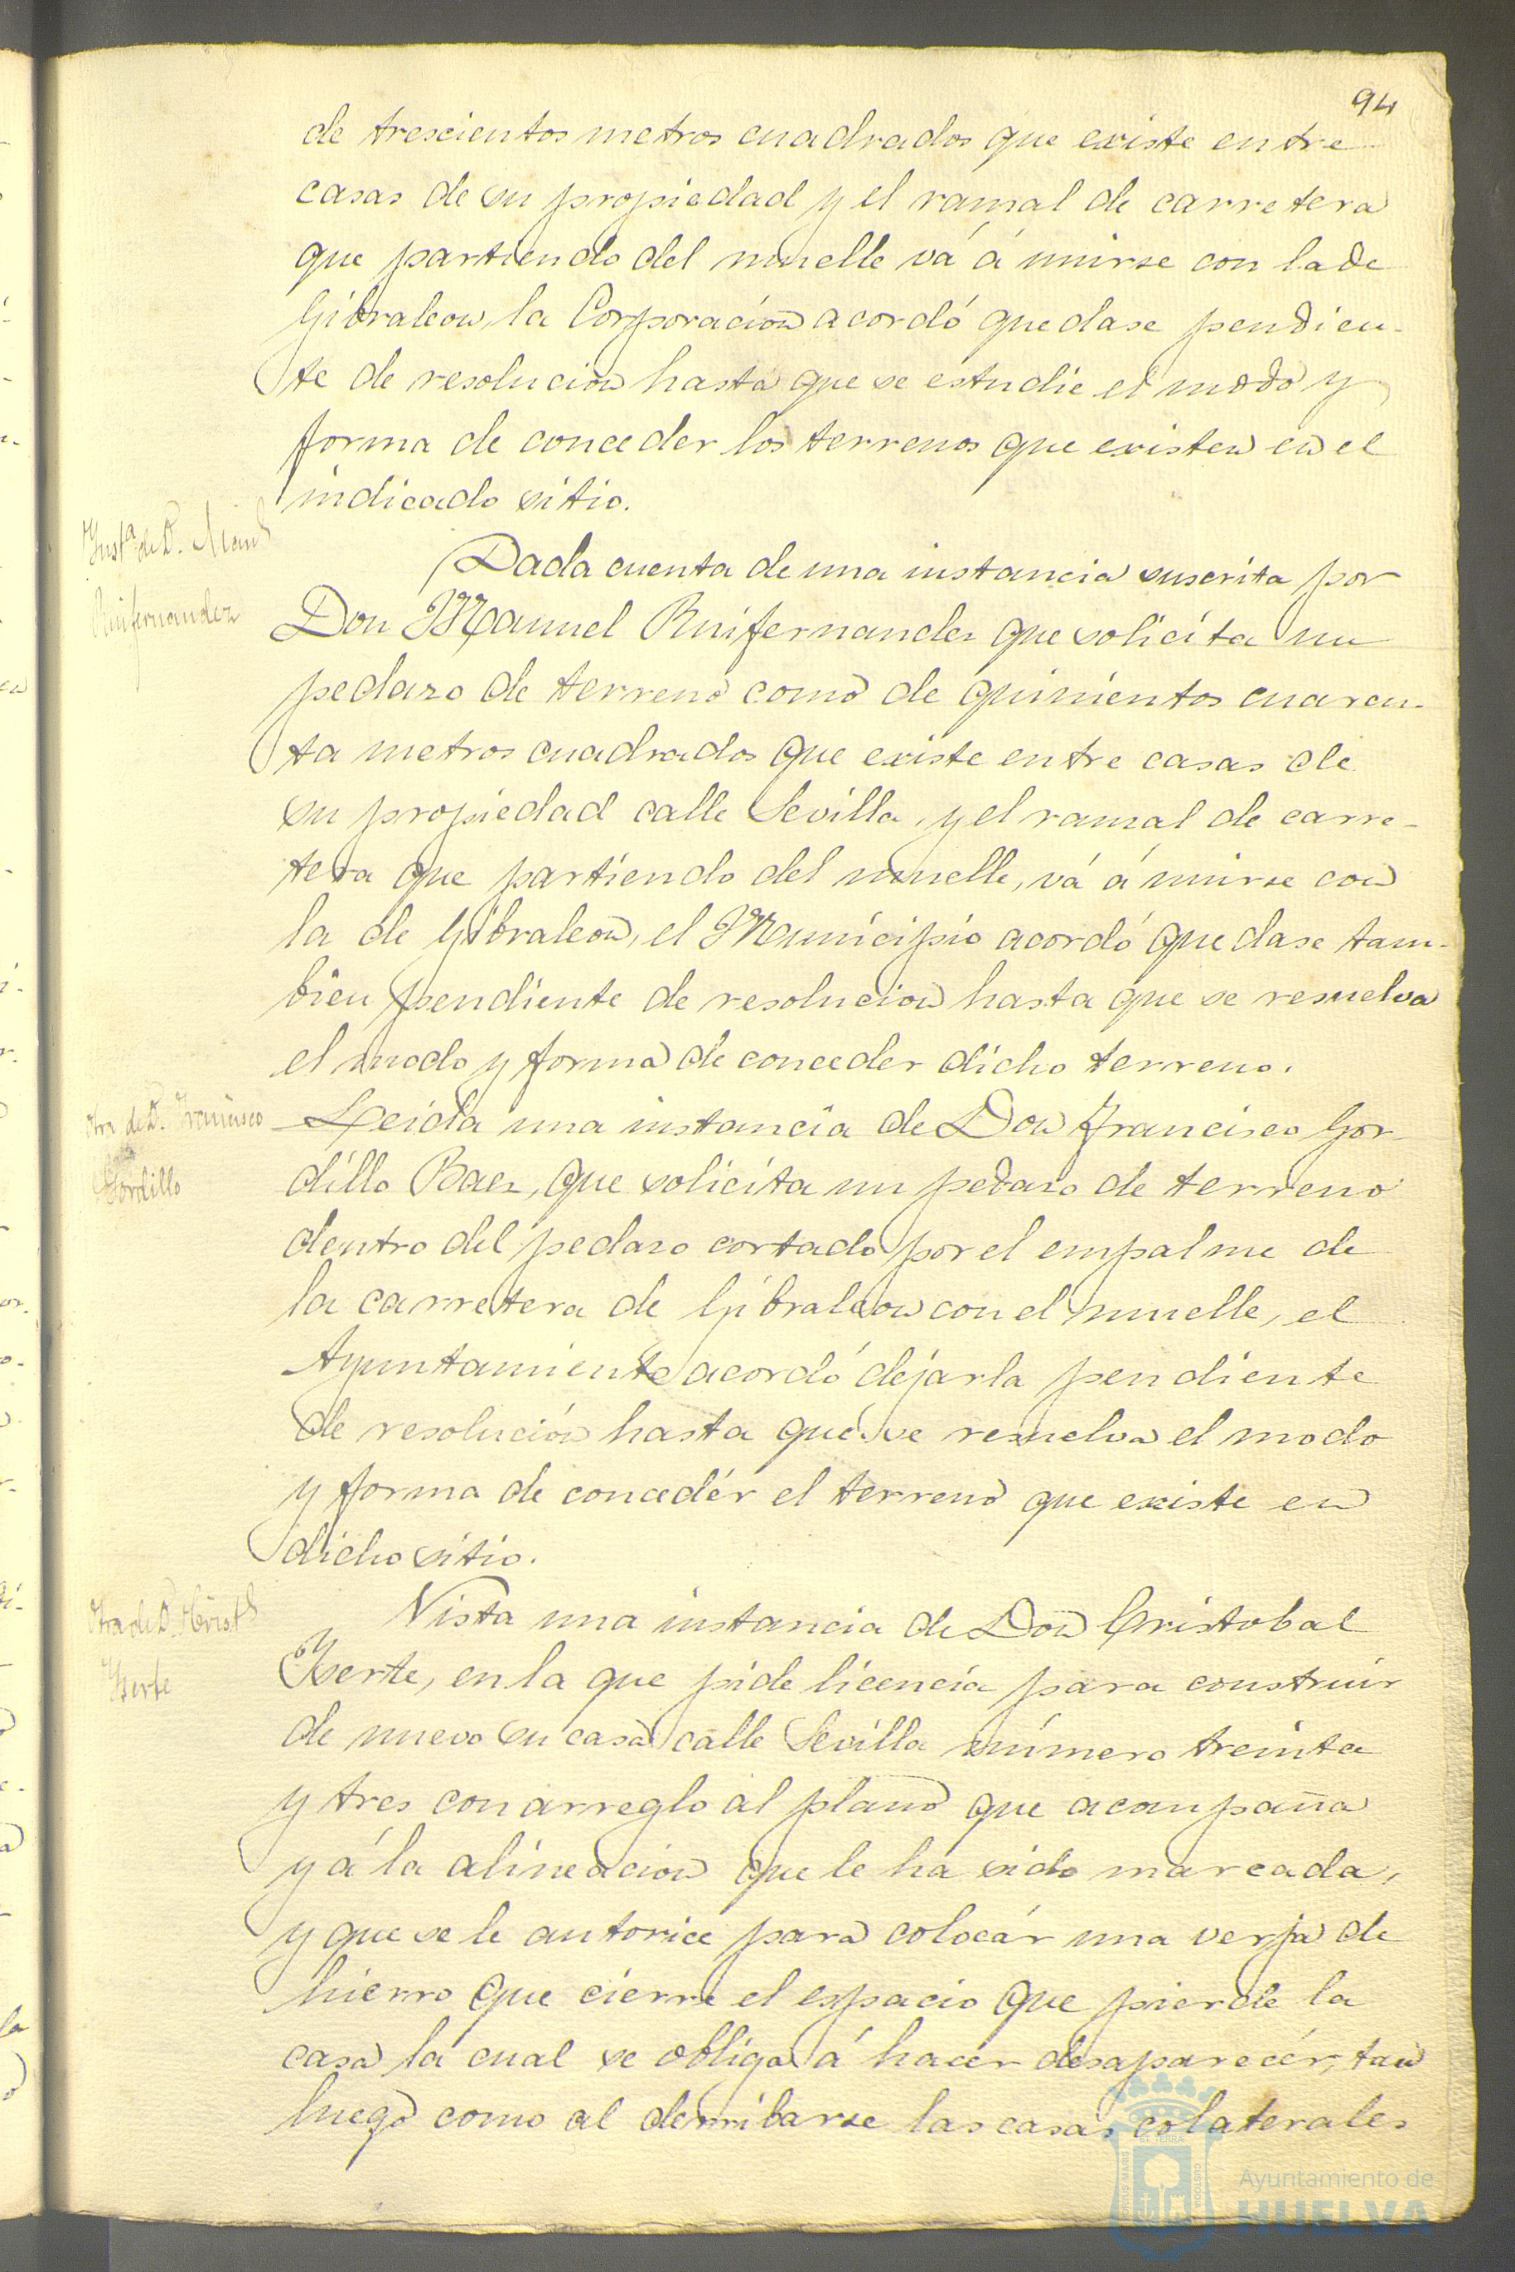 94
de trescientos metros cuadrados que existe entre
casas de su propiedad y el ramal de carretera
que partiendo del muelle vá á unirse con la de
Gibraleon, la Corporacion acordó quedase pendien-
te de resolucion hasta que se estudie el modo y
forma de conceder los terrenos que existen en el
indicado sitio.
Inst.ª de D. Man.l
Ruifernandez
Dada cuenta de una instancia suscrita por
Don Manuel Ruifernandez que solicita un
pedazo de terreno como de quinientos cuaren-
ta metros cuadrados que existe entre casas de
su propiedad calle Sevilla, y el ramal de carre-
tera que partiendo del muelle, vá á unirse con
la de Gibraleon, el Municipio acordó quedase tam-
bien pendiente de resolucion hasta que se resuelva
el modo y forma de conceder dicho terreno.
Otra de D. Francisco
Gordillo
Leida una instancia de Don Francisco Gor-
dillo Baez, que solicita un pedazo de terreno
dentro del pedazo cortado por el empalme de
la carretera de Gibraleon con el muelle, el
Ayuntamiento acordó dejarla pendiente
de resolución hasta que se resuelva el modo
y forma de concedér el terreno que existe en
dicho sitio.
Otra de D. Crist.l
Yserte
Vista una instancia de Don Cristobal
Yserte, en la que pide licencia para construir
de nuevo su casa calle Sevilla número treinta
y tres con arreglo al plano que acompaña
y á la alineacion que le ha sido marcada,
y que se le autorice para colocár una verja de
hierro que cierre el espacio que pierde la
casa la cual se obliga á hacer desaparecér, tan
luego como al derribarse las casas colaterales
Ayuntamiento de
HUELVA